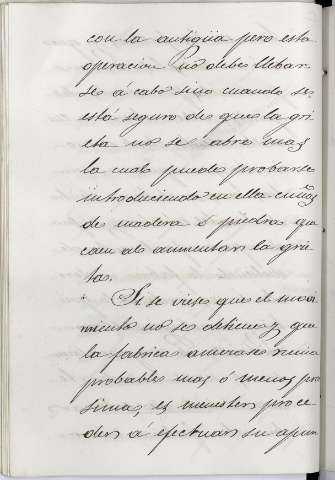 con la antigüa pero esta
operacion no debe llebar-
se á cabo sino cuando se
está seguro de que la gri
eta no se abra mas
la cual puede probarse
introduciendo en ella cuñas
de madera ó piedra que
caen al aumentar la grie
ta.
Si se viese que el movi
miento no se detiene y que
la fabrica amenaza ruina
probable mas ó menos pro
sima, es menester proce
der á efectuar su apun